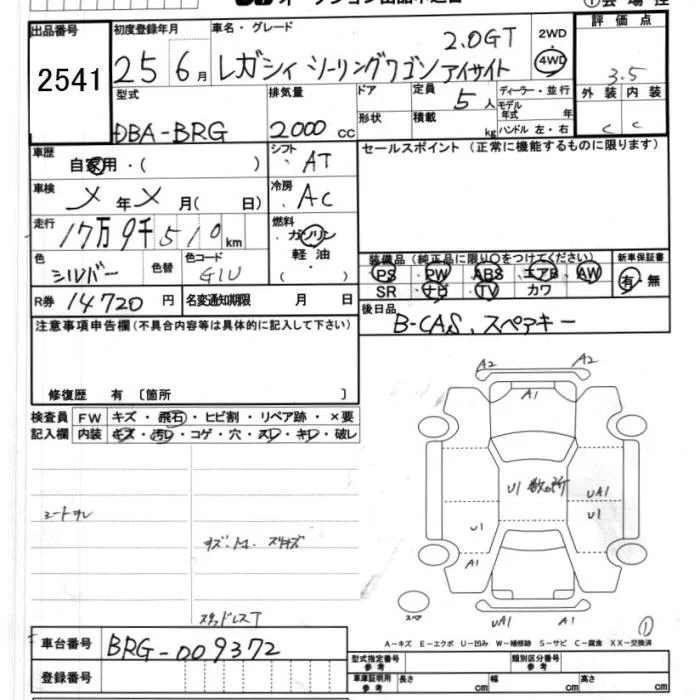 出品番号
2541
初度登録年月
25 6月
車名・グレード
2.0GT
レガシィ ツーリングワゴン アイサイト
2WD
・
4WD
評価点
3.5
外装 内装
C C
型式
DBA-BRG
排気量
2000 cc
ドア
形状
定員
5人
積載
kg
ディーラー・並行
モデル年式 年
ハンドル 左・右
車歴
自家用・( )
シフト
AT
セールスポイント(正常に機能するものに限ります)
車検
メ年メ月( 日)
冷房
AC
走行
17万9千510km
燃料
ガソリン
・
軽油
・( )
色
シルバー
色替
色コード
G1U
装備品(純正品に限り〇をつけてください)
新車保証書
PS PW ABS エアB AW
SR ナビ TV カワ
有・無
R券 14720円
名変通知期限 月 日
後日品
B-CAS、スペアキー
注意事項申告欄(不具合内容等は具体的に記入して下さい)
修復歴 有〔箇所 〕
検査員
記入欄
FW キズ・飛石・ヒビ割・リペア跡・×要
内装 キズ・汚レ・コゲ・穴・スレ・キレ・破レ
A2 A2
A1
U1
UA1
U1
U1
A1
スペア
UA1 A1
①
A-キズ E-エクボ U-凹み W-補修跡 S-サビ C-腐食 XX-交換済
車台番号 BRG-009372
登録番号
型式指定番号
参考
類別区分番号
参考
車庫証明用
参考
長さ cm 幅 cm 高さ cm